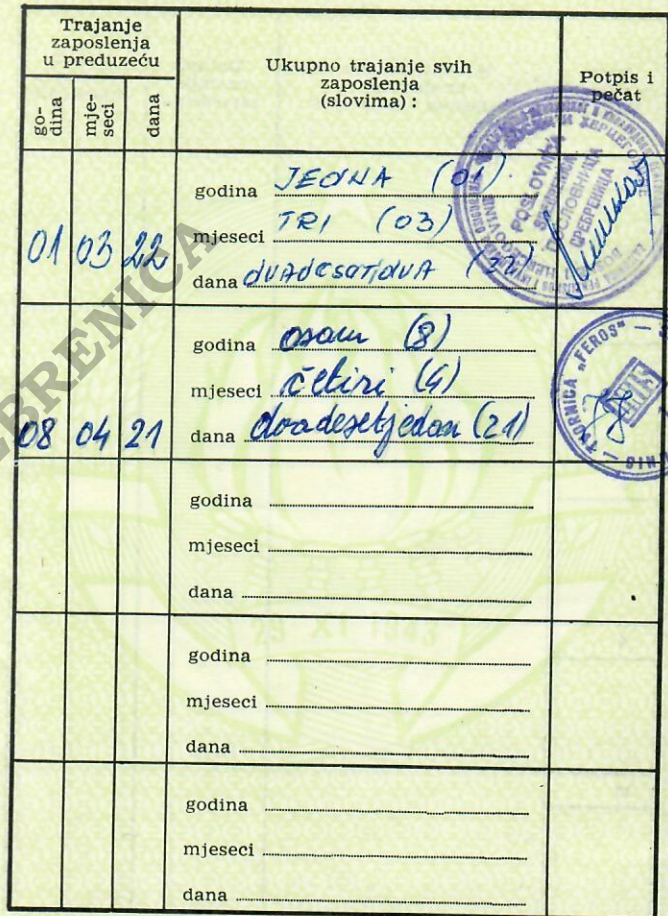 Trajanje
zaposlenja
u preduzeću
Ukupno trajanje svih
zaposlenja
(slovima) :
Potpis i
pečat
go-
dina
mje-
seci
dana
01 03 22
godina JEDNA (01)
mjeseci TRI (03)
dana dVADESATidVA (22)
POSLOVNICA
SREBRENICA
ПОСЛОВНИЦА
СРЕБРЕНИЦА
08 04 21
godina osam (8)
mjeseci četiri (4)
dana dvadesetjedan (21)
"FEROS"
FEROS
NIŠ
godina
mjeseci
dana
godina
mjeseci
dana
godina
mjeseci
dana
EBRENICA
29 XI 1943